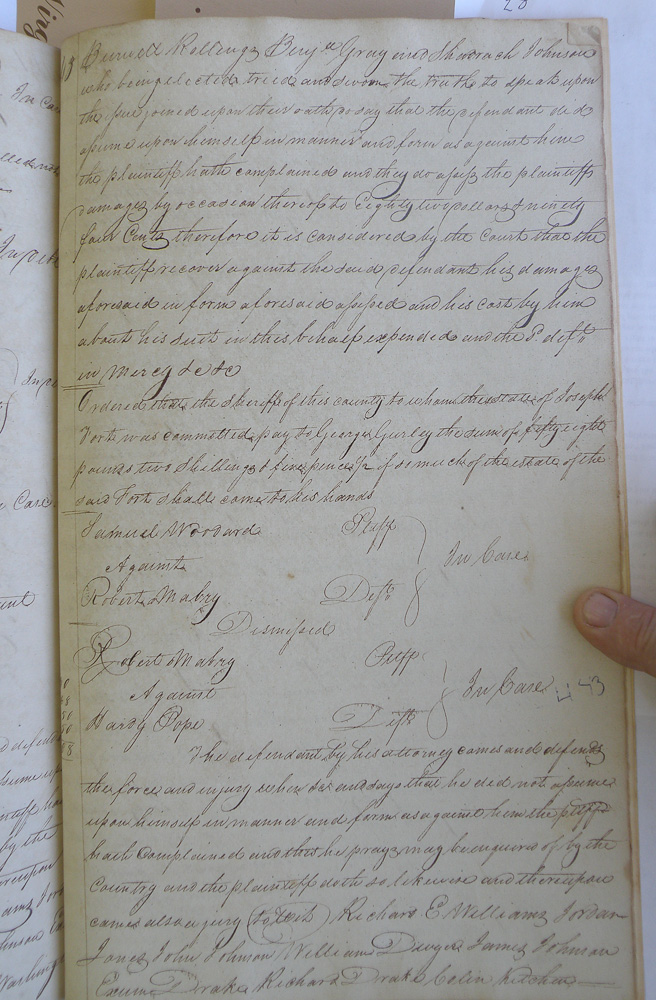 Burwell Rollings Benja Gray and Shadrach Johnson
who being elected tried and sworn the truth to speak upon
the issue joined upon their oath do say that the defendant did
assume upon himself in manner and form as against him
the plaintiff hath complained and they do assess the plaintiffs
damages by occasion thereof to Eighty two dollars & ninety
four Cents therefore it is considered by the Court that the
plaintiff recover against the said defendant his damages
aforesaid in form aforesaid assessed and his cost by him
about his suit in this behalf expended and the sd. deft.
in mercy &c &c
Ordered that the sheriff of this county to whom the estate of Joseph
Fort was committed pay to George Gurley the sum of fifty eight
pounds two shillings & five pence 1/2 if so much of the estate of the
said Fort shall come to his hands
Samuel Woodard Pltff
Against In Case
Robert Mabry Deft.
Dismissed
Robert Mabry Pltff
Against In Case 43
Hardy Pope Deft.
The defendant by his attorney comes and defends
the force and injury when &c and says that he did not assume
upon himself in manner and form as against him the pltff
hath complained and this he prays may be enquired of by the
Country and the plaintiff doth so likewise and thereupon
came also a jury (to wit) Richard E Williams Jordan
Jones John Johnson William James Johnson
Exum Drake Richard Drake Colin Kitchen